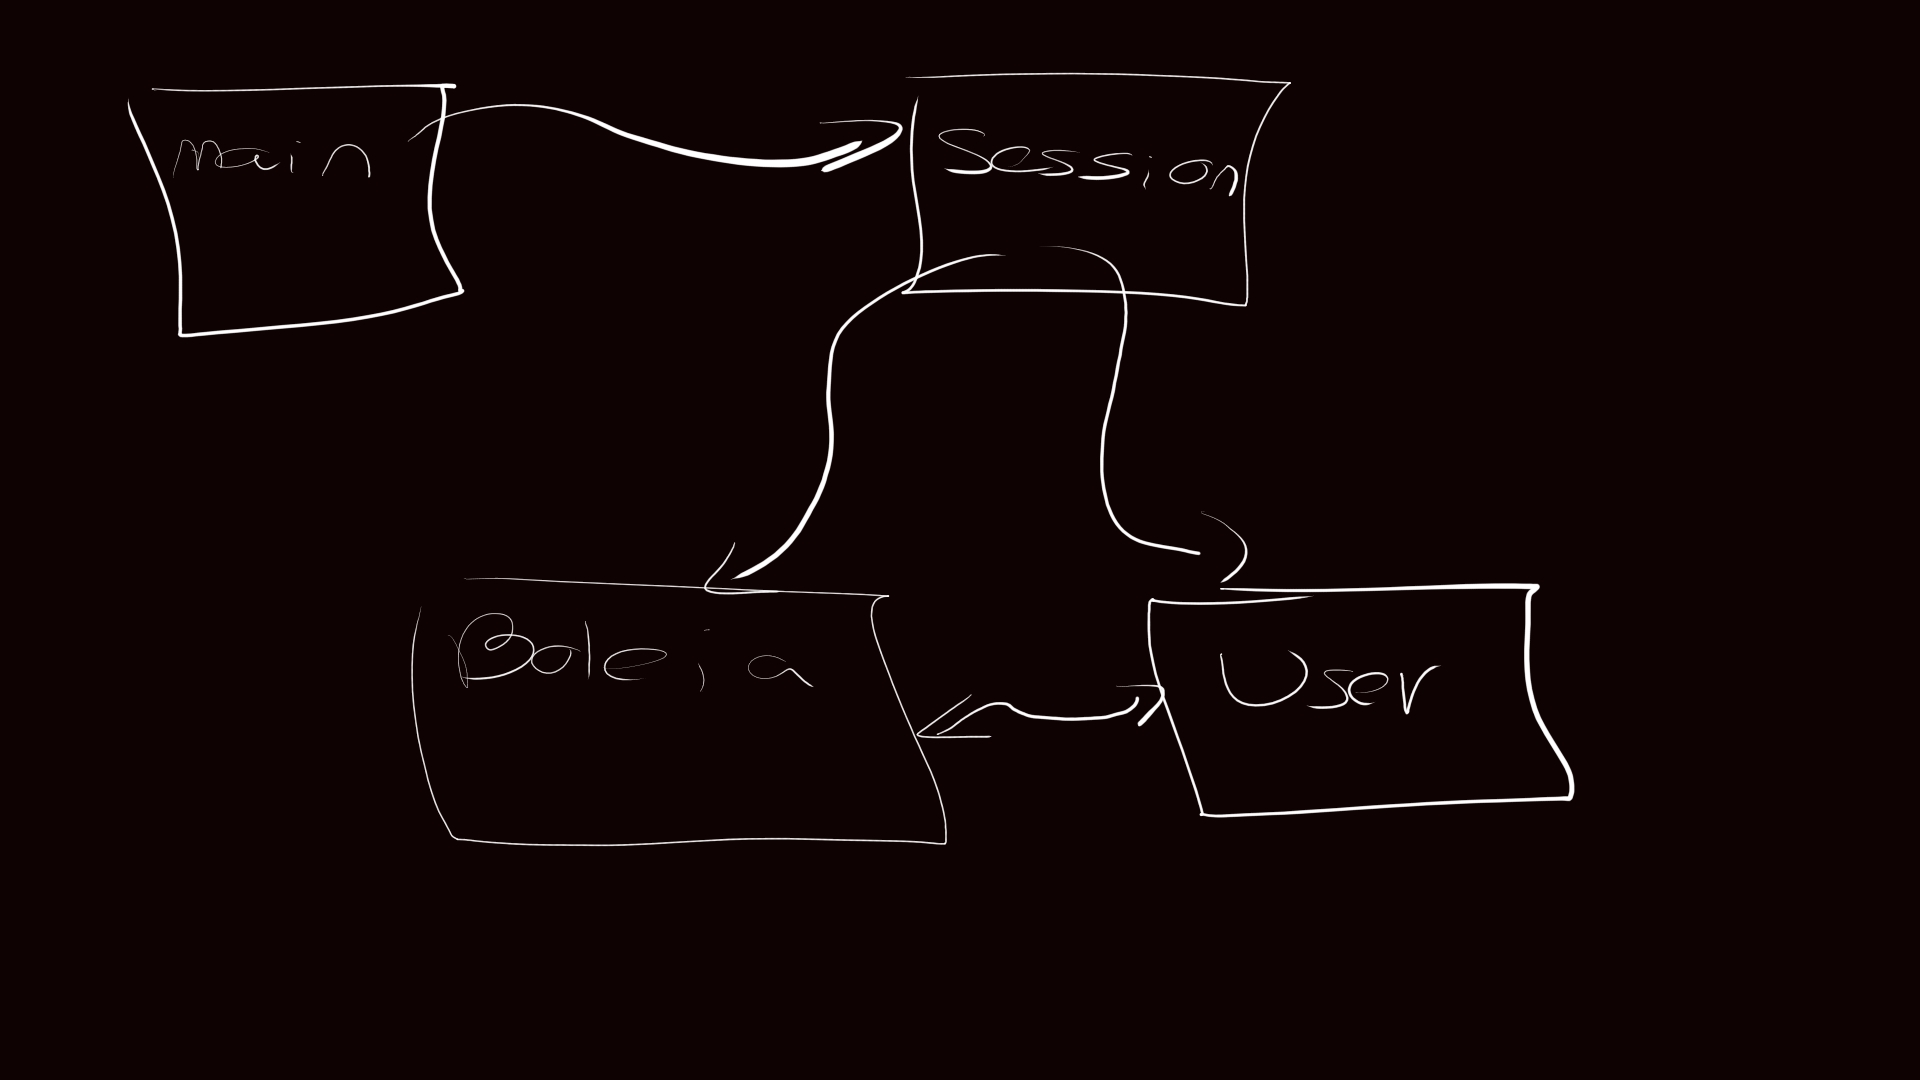 Main
Session
Boleia
User